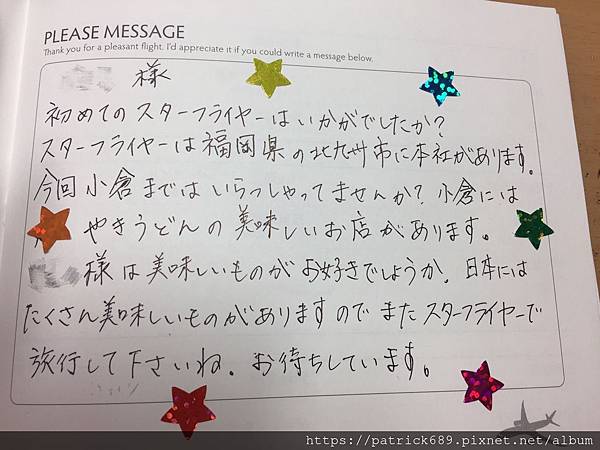 PLEASE MESSAGE
Thank you for a pleasant flight. I'd appreciate it if you could write a message below.
様
初めてのスターフライヤーはいかがでしたか?
スターフライヤーは福岡県の北九州市に本社があります。
今回小倉まではいらっしゃってませんか?小倉には
やきうどんの美味しいお店があります。
様は美味しいものがお好きでしょうか。日本には
たくさん美味しいものがありますのでまたスターフライヤーで
旅行して下さいね。お待ちしています。
https://patrick689.pixnet.net/album